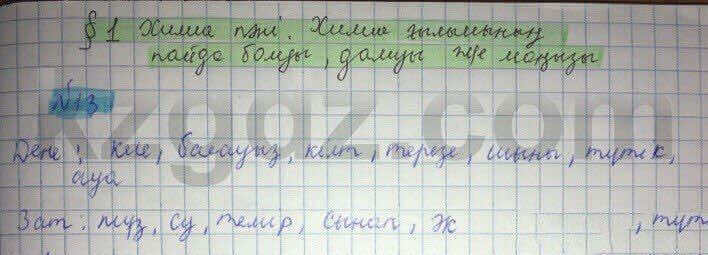 § 1 Химия пәні. Химия ғылымының
пайда болуы, дамуы және маңызы
№13
Дене: кесе, балауыз, кілт, терезе, шыны, түтік,
ауа
Зат: мұз, су, темір, сынап,
kzgaz.com